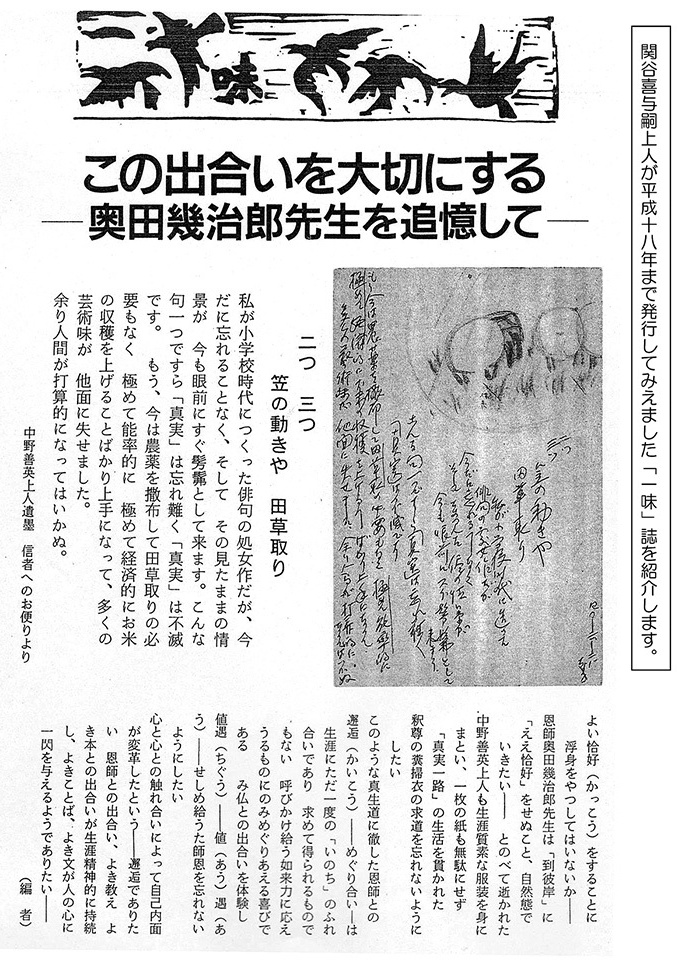 関谷喜与嗣上人が平成十八年まで発行してみえました「一味」誌を紹介します。
一味
この出合いを大切にする
―奥田幾治郎先生を追憶して―
二つ　三つ
笠の動きや　田草取り
私が小学校時代につくった俳句の処女作だが、今
だに忘れることなく、そして　その見たままの情
景が　今も眼前にすぐ髣髴として来ます。こんな
句一つですら「真実」は忘れ難く「真実」は不滅
です。　もう、今は農薬を撒布して田草取りの必
要もなく　極めて能率的に　極めて経済的にお米
の収穫を上げることばかり上手になって、多くの
芸術味が　他面に失せました。
余り人間が打算的になってはいかぬ。
中野善英上人遺墨　信者へのお便りより
よい恰好（かっこう）をすることに
浮身をやつしてはいないか――
恩師奥田幾治郎先生は「到彼岸」に
「ええ恰好」をせぬこと、自然態で
いきたい――　とのべて逝かれた
中野善英上人も生涯質素な服装を身に
まとい、一枚の紙も無駄にせず
「真実一路」の生活を貫かれた
釈尊の糞掃衣の求道を忘れないように
したい
このような真生道に徹した恩師との
邂逅（かいこう）――めぐり合い―は
生涯にただ一度の「いのち」のふれ
合いであり　求めて得られるもので
もない　呼びかけ給う如来力に応え
うるものにのみめぐりあえる喜びで
ある　　み仏との出合いを体験し
値遇（ちぐう）――値（あう）遇（あ
う）――せしめ給うた師恩を忘れない
ようにしたい
心と心との触れ合いによって自己内面
が変革したという――邂逅でありた
い　恩師との出合い、よき教え　よ
き本との出合いが生涯精神的に持続
し、よきことば、よき文が人の心に
一閃を与えるようでありたい――
（編　者）